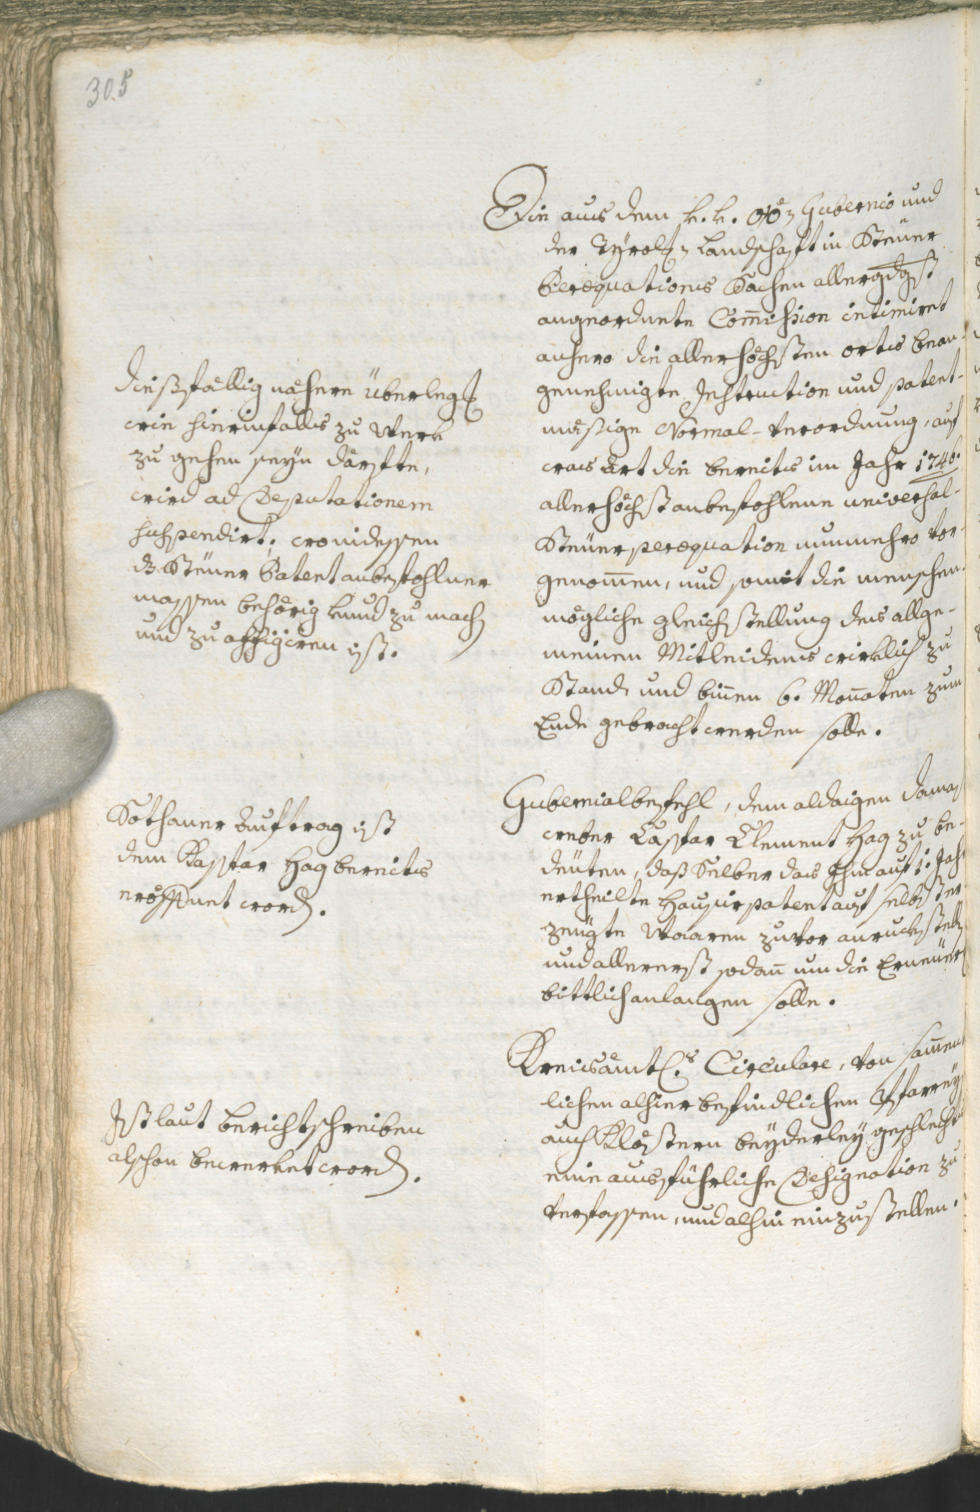 305
Die aus dem k. k. OÖ: Gubernio und
der Tyrol: Landschaft in Steuer
Peræquations Sachen allergdgst
angeordnete Commission intimiret
anhero die allerhöchsten orts bean-
genehmigte Instruction und patent-
mäßige Normal-Verordnung, auf
was Art die bereits im Jahr 1746.
allerhöchst anbefohlene universal-
Steuerperæquation nunmehro vor-
genommen, und somit die menschen-
mögliche gleichstellung des allge-
meinen Mitleidens wirklich zu
Stand, und binnen 6. Monaten zum
Ende gebracht werden solle.
dießfällig nähere Überlegung
wie hierinfalls zu Werk
zu gehen seyn därfte,
wird ad Deputationem
suspendirt; wo indessen
das Steuer Patent anbefohlner
massen behörig kund zu machen
und zu affigiren ist.
Gubernialbefehl, dem aldaigen
weber Caspar Clement Hag zu be-
deuten, daß Selber das Ihm auf 1. Jahr
ertheilte Hausirpatent auf selbst er-
zeugte Waaren zuvor zuruckstellen
und allererst sodann um die Erneuerung
bittlich anlangen solle.
Sothaner Auftrag ist
dem Kaspar Hag bereits
eröffnet word.
Kreisämtl. Circulare, von sammen-
lichen alhier befindlichen Pfarreyen
auch Klöstern beyderley geschlecht
eine ausführliche Designation zu
verfassen, und alhin einzustellen.
Ist laut Berichtschreiben
alschon bewerket word.